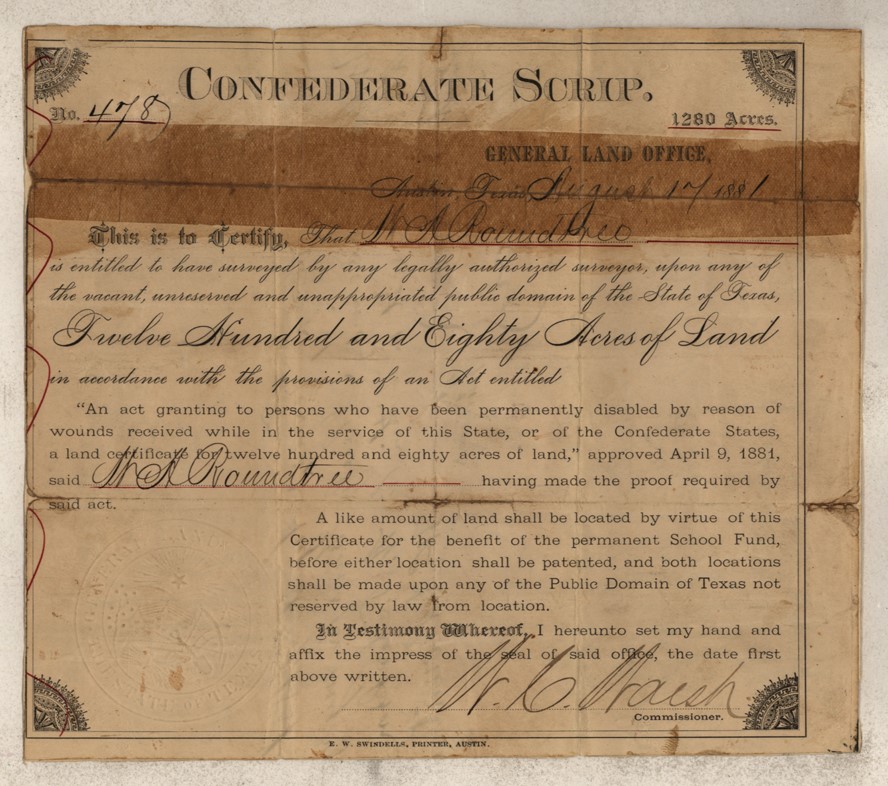 CONFEDERATE SCRIP.
No. 478
1280 Acres.
GENERAL LAND OFFICE,
Austin, Texas, August 17 1881
This is to Certify, That W A Roundtree
is entitled to have surveyed by any legally authorized surveyor, upon any of
the vacant, unreserved and unappropriated public domain of the State of Texas,
Twelve Hundred and Eighty Acres of Land
in accordance with the provisions of an Act entitled
"An act granting to persons who have been permanently disabled by reason of
wounds received while in the service of this State, or of the Confederate States,
a land certificate for twelve hundred and eighty acres of land," approved April 9, 1881,
said W A Roundtree having made the proof required by
said act.
A like amount of land shall be located by virtue of this
Certificate for the benefit of the permanent School Fund,
before either location shall be patented, and both locations
shall be made upon any of the Public Domain of Texas not
reserved by law from location.
In Testimony Whereof, I hereunto set my hand and
affix the impress of the seal of said office, the date first
above written.
W. C. Walsh
Commissioner.
E. W. SWINDELLS, PRINTER, AUSTIN.